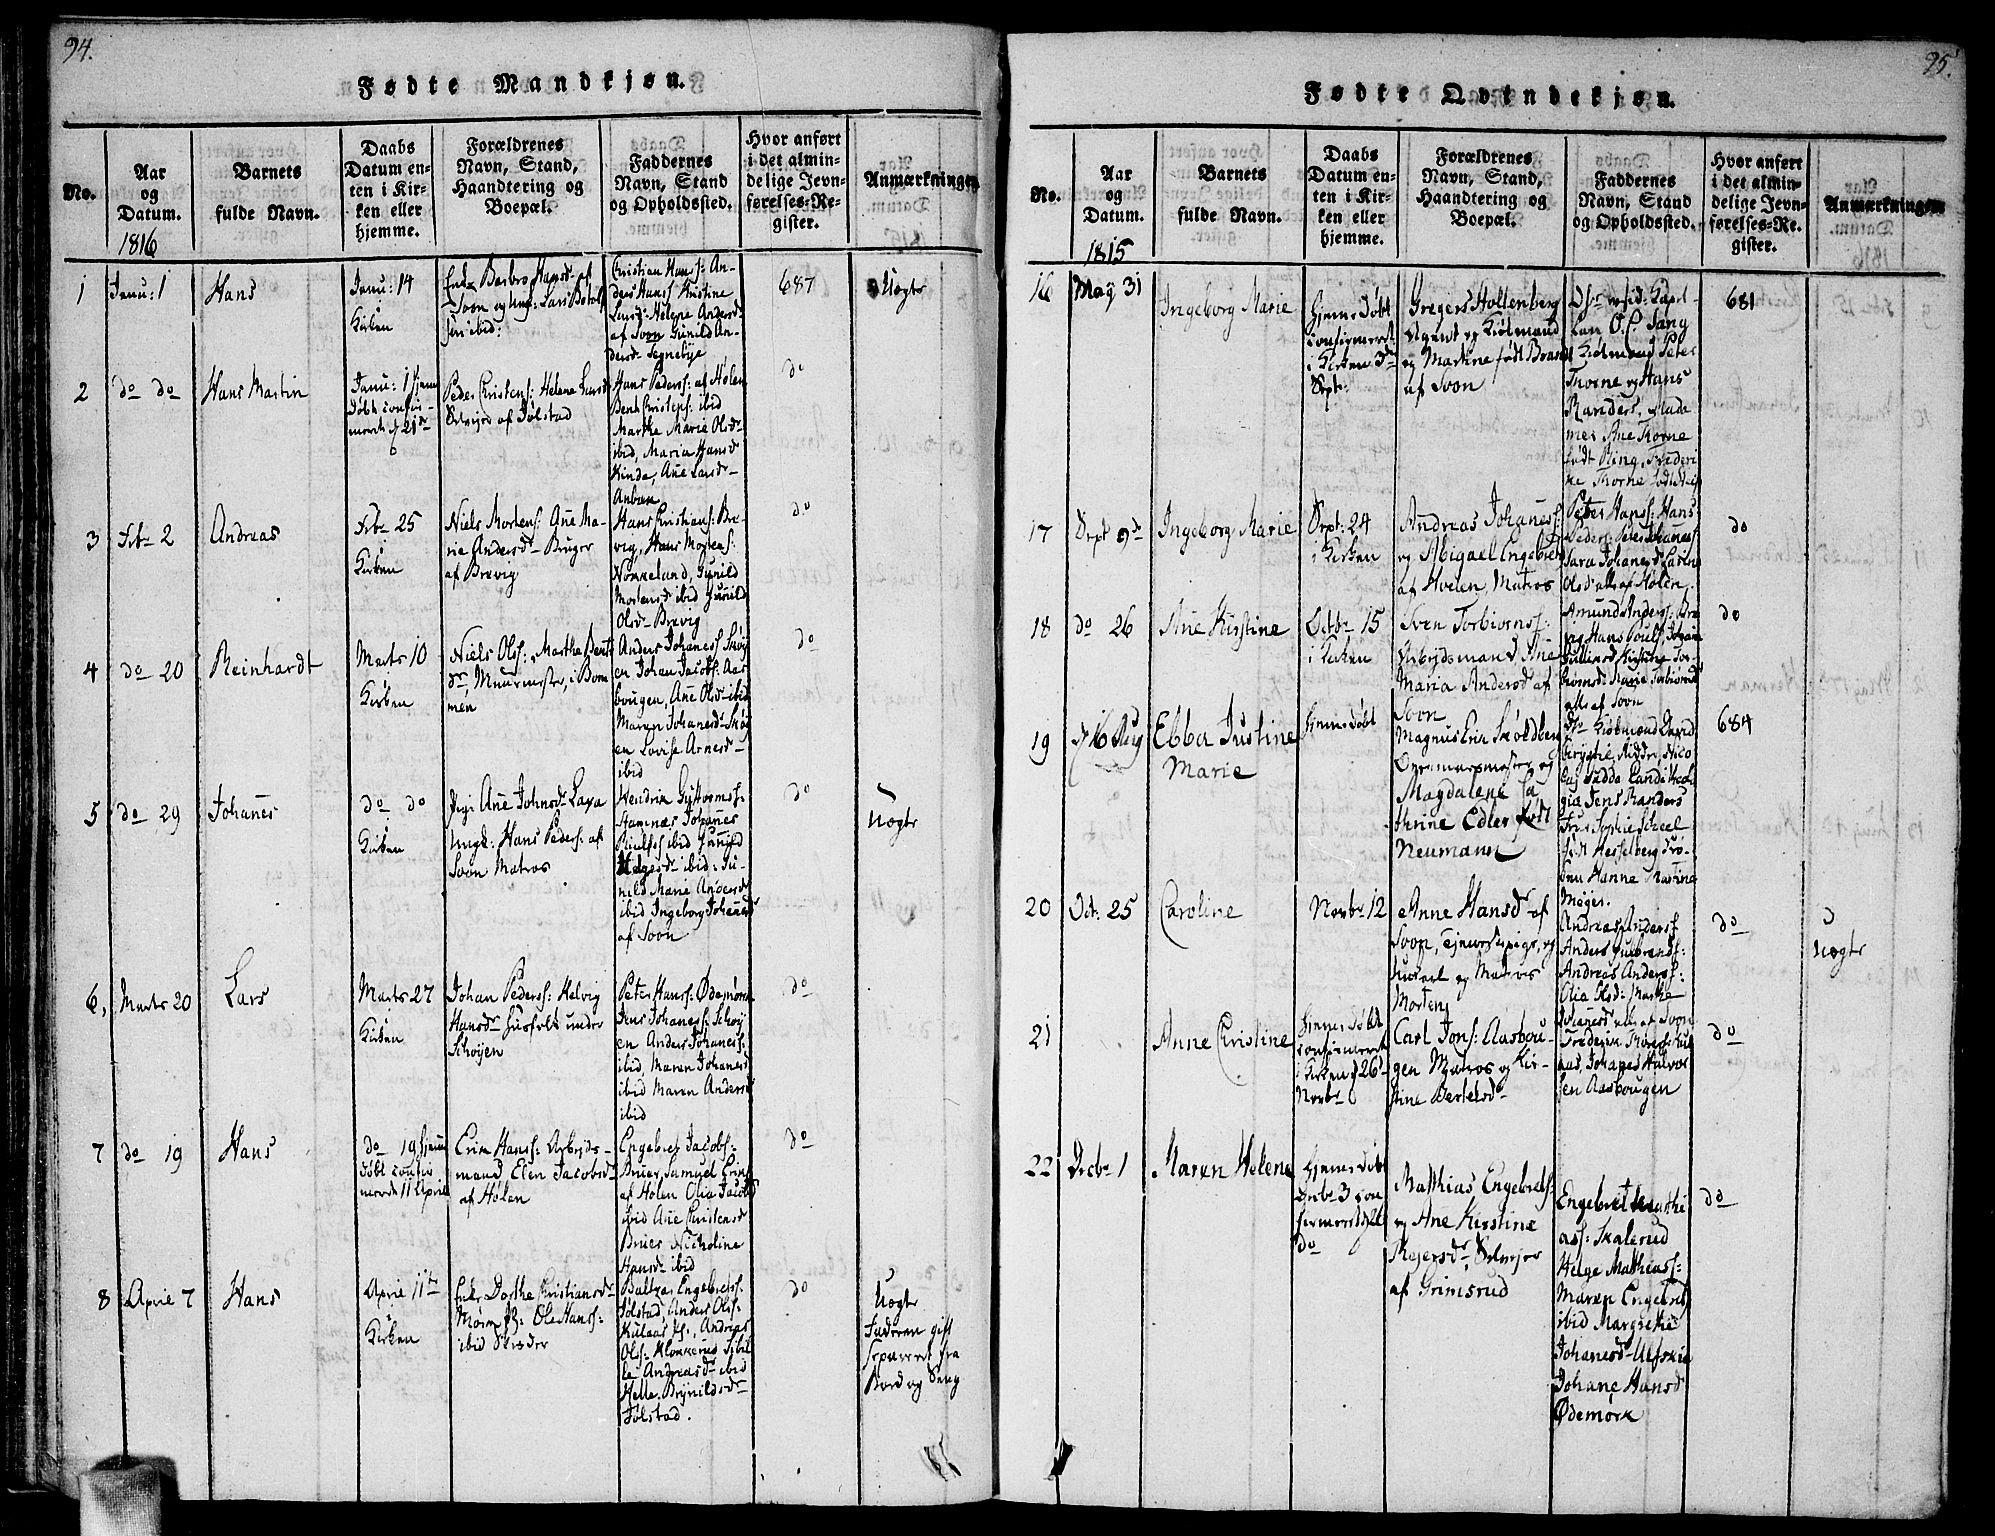 94.
Fødte Mandkjøn.
No.
Aar
og
Datum.
1816
Barnets
fulde Navn.
Daabs
Datum en-
ten i Kir-
ken eller
hjemme.
Forældrenes
Navn, Stand,
Haandtering og
Boepæl.
Faddernes
Navn, Stand
og Opholdssted.
Hvor anført
i det almin-
delige Jevn-
førelses-Re-
gister.
Anmærkninger
1
Janu: 1
Hans
Janu: 14
Kirken
Enke Barbro Hansdr af
Soon og Ungk: Lars
ibid:
Christian Hanss: An-
ders Hanss Kirstine
Larsd: Helene Andersd
af Soon Gunild An-
dersdr Segnebye
687
Uægte
2
do do
Hans Martin
Janu: 1 hjem
døbt confir-
meret d 21de
Peder Christens: Helene Larsd
Selvejer af Jølstad
Hans Peders: af Hølen
Bent Christophs: ibid
Marthe Marie Olsdr
ibid, Maria Hansd
Kinde, Ane Larsdr
do
3
Febr 2
Andreas
Febr 25
Kirken
Niels Mortens: Ane Ma-
rie Andersdr Bruger
af Brevig
Hans Christians: Bre-
vig, Hans Mortens:
Nordeland, Gunild
Mortensdr ibid Gunild
Olsdr Brevig
do
4
do 20
Reinhardt
Marts 10
Kirken
Niels Ols: Marthe Bent
dr, Muurmester, i Bom
men
Anders Johaness Skøy
en Johan Jacobs: Aas
bougen, Ane Olsdr ibid
Maren Johanesdr Skøy
en Lovise Arnesdr
ibid
do
5
do 29
Johanes
do do
Kirken
Pige Ane Johnsdr Laxa
Ungk: Hans Peders: af
Soon Matros
Hendrik Guttorms:
Hamnæs Johanes
ibid Gunild
Helgesd ibid: Gu-
nild Marie Andersd
ibid Ingeborg Johanesd
af Soon
do
Uægte
6,
Marts 20
Lars
Marts 27
Kirken
Johan Peders: Helvig
Hansdr Huusfolk under
Schøyen
Peter Hanss: Ødemørk
Jens Johaness: Schøy
en Anders Johaness:
ibid, Maren Johanesd
ibid Maren Andersd
ibid
do
7
do 19
Hans
do 19 hjem
døbt confir
meret 11 April
Erik Hanss: Arbejds-
mand Elen Jacobsdr
af Hølen
Engebret Jacobs:
Brier, Samuel Eriks
af Hølen Olia Jacobsd
ibid Ane Christensd
Brier Nicholine
Hansdr ibid
do
8
April 7
Hans
April 11te
Kirken
Enke Dorthe Christiansdr
Mørk: Ole Hanss:
ibid Skræder
Baltzar Engebretss:
Jølstad, Anders Olss:
Kulaas, Andreas
Olss: Klokkerud Sibil
le Andreasdr ibid
Helle Brynildsdr
Jølstad.
do
Uægte
Faderen gift
separeret fra
Bord og Seng
95.
Fødte Qvindekjøn.
No.
Aar
og
Datum.
1815
Barnets
fulde Navn.
Daabs
Datum en-
ten i Kir-
ken eller
hjemme.
Forældrenes
Navn, Stand,
Haandtering og
Boepæl.
Faddernes
Navn, Stand
og Opholdssted.
Hvor anført
i det almin-
delige Jevn-
førelses-Re-
gister.
Anmærkninger
16
May 31
Ingeborg Marie
hjemme døbt
confirmeret
i Kirken 3de
Sept:
Gregers Hollenberg
Agent og Kiøbmand
og Martine født Brandt
af Soon
Hr resid: Capel-
lan O. C. Sang
Kiøbmand Peter
Thorne og Hans
Randers, Mada
mer Ane Thorne
født Ring, Frederi
ke Thorne født
681
17
Sept 9de
Ingeborg Marie
Sept: 24
i Kirken
Andreas Johaness:
og Abigael Engebretsd
af Hvelen, Matros
Peter Hans: Hans
Peders: Peter Johaness:
Sara Johanesd Larine
Olsdr alle af Hølen.
do
18
do 26
Ane Kirstine
Octbr 15
i Kirken
Sven Torbiørns:
Arbejdsmand Ane
Maria Andersd af
Soon
Amund Anders: Bre
vig Hans Pouls, Johane
Kirstine Tor-
biørnsdr Marie Torbiørnsd
alle af Soon
do
19
d 16 Aug
Ebba Justine
Marie
hjemmedøbt
Magnus Erik Skoldberg
og
Magdalene Ca
thrine Edler født
Neumann
Hr Kiøbmand David
Jens Randers
Frue Sophie Scheel
født Hesselberg Frø-
ken Hanne Martine
Møyer.
684
20
Oct: 25
Caroline
Novbr 12
Anne Hansd af
Soon, Tjenestepige, og
Matros
Morten
Andreas Anderss
Anders Gulbrands:
Andreas Anderss:
Olia Olsd: Marthe
Johanesd alle af Soon
do
Uægte
21
Anne Christine
hjemme døbt
confirmeret
i Kirken d 26de
Novbr
Carl Jons: Aasbou-
gen Matros og Kir-
stine Bertelsdr
Frederik Thoress: Kul
aas, Johanes Halvor
sen Aasbougen
do
22
Decbr 1
Maren Helene
hjemme døbt
Decbr 3 con
firmeret d 26
do
Matthias Engebrets:
og Ane Kirstine
Rejersdr, Selvejer
af Grimsrud
Engebret Matthi
ass: Skalerud
Helge Mathiass:
Maren Engebretsd
ibid Margrethe
Johanesdr Ulfskia
Johane Hansd
Ødemørk
do